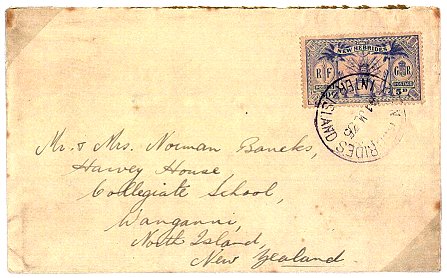 NEW HEBRIDES
R F
G R
5D
INTER ISLAND
RIDES
Mr. & Mrs. Norman Bancks,
Harvey House
Collegiate School,
Wanganni,
North Island,
New Zealand.